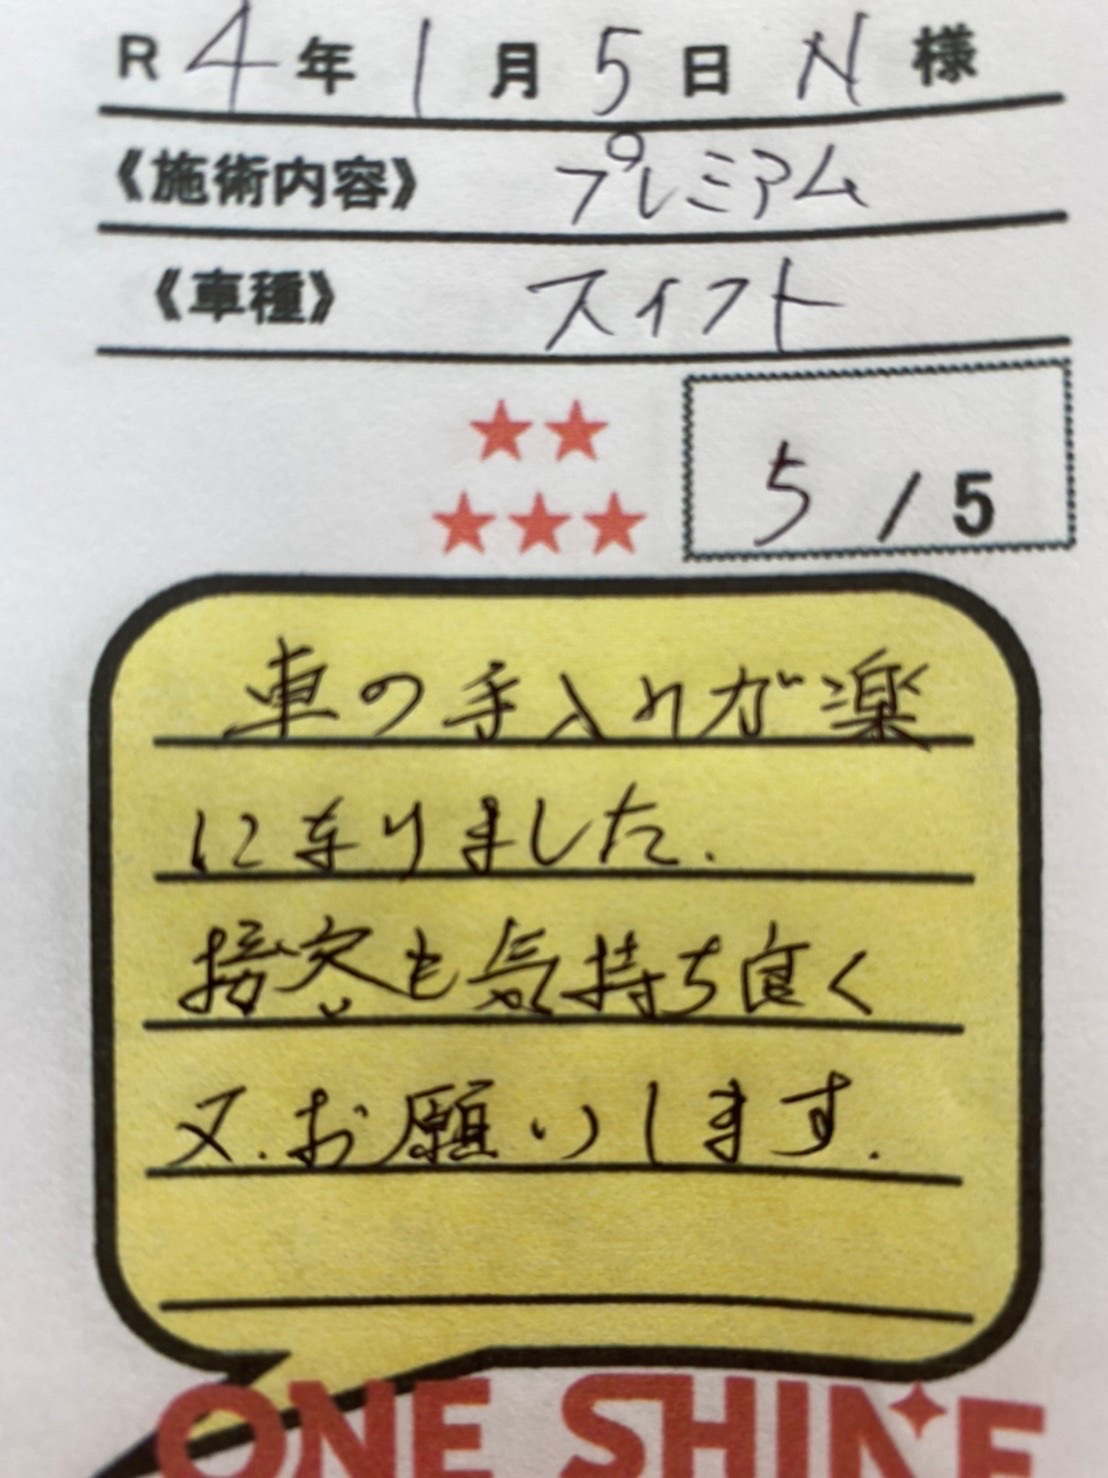 R 4年 1月 5日 N 様
《施術内容》 プレミアム
《車種》 スイフト
★★
★★★ 5 / 5
車の手入れが楽
になりました.
接客も気持ち良く
又.お願いします.
ONE SHINE